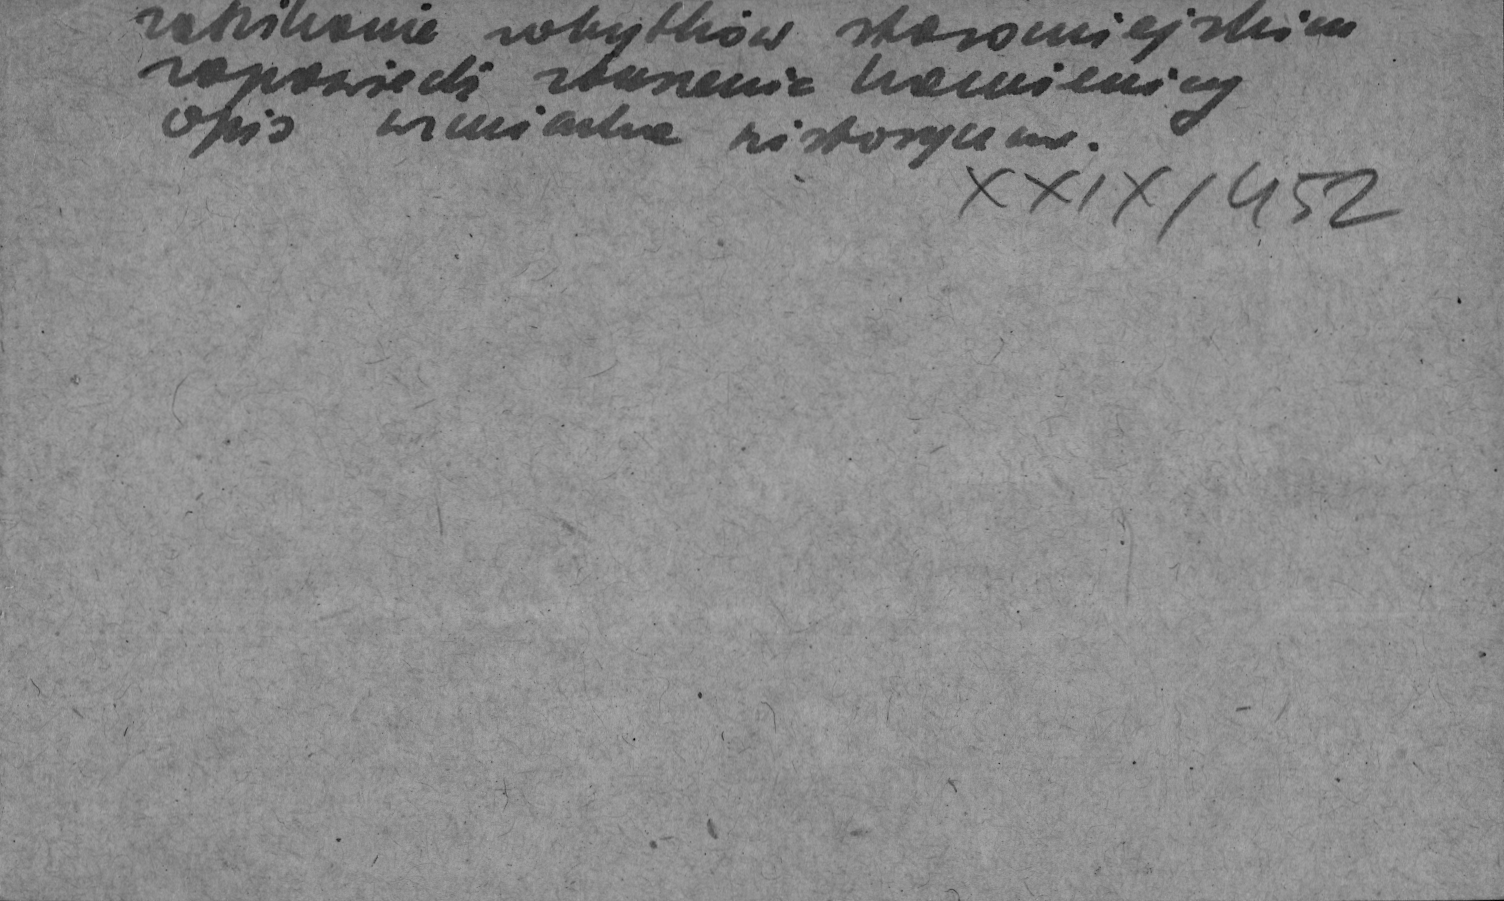 zanikanie zabytków staromiejskich
zapowiedź zburzenia kamienicy
opis wzmianka historyczna.
XXIX/452